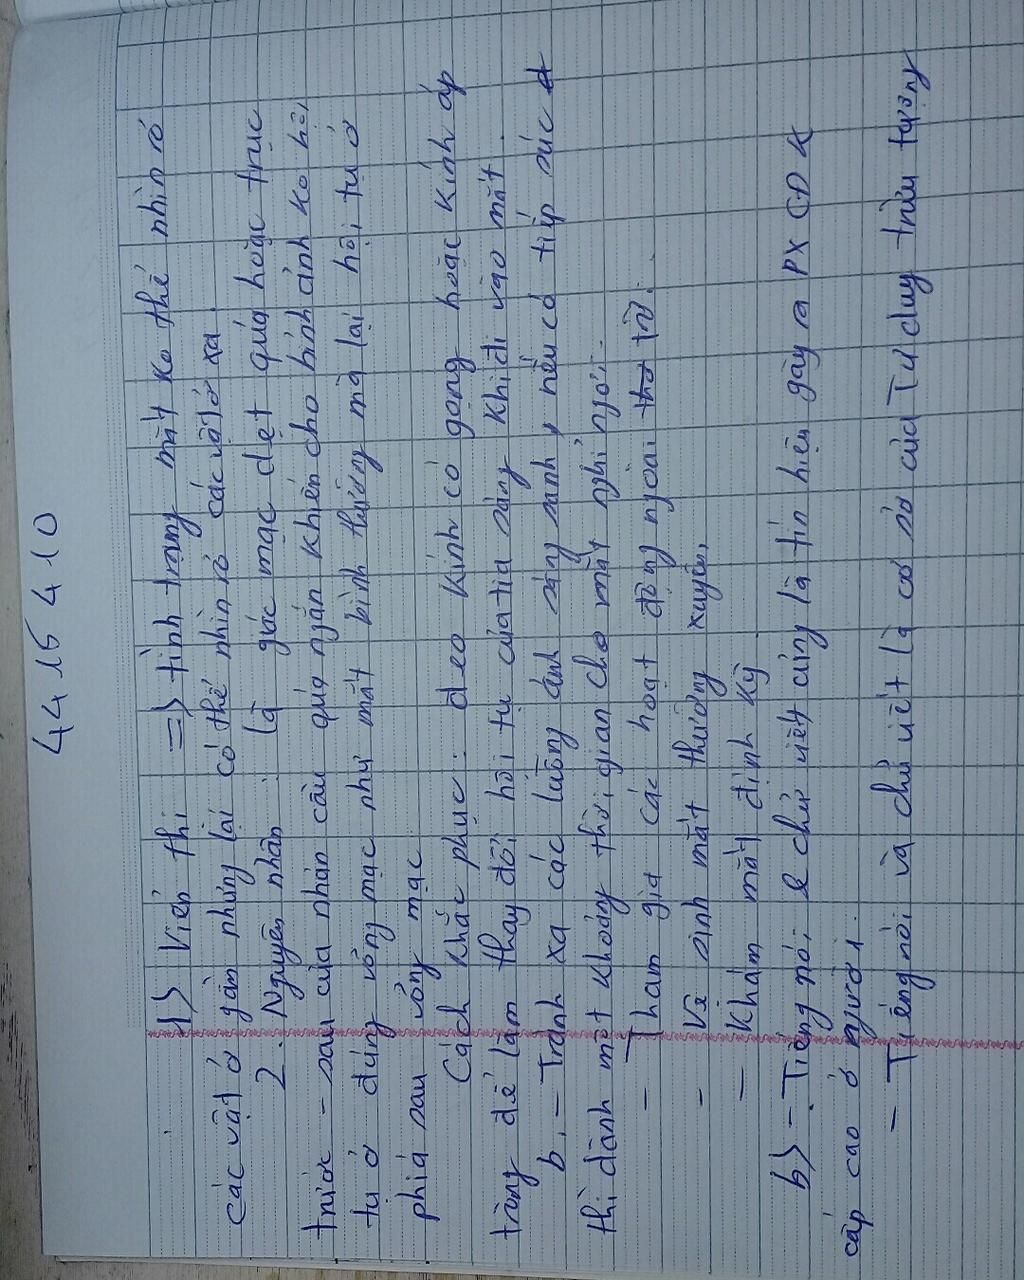 44 16 4 10
1> Viễn thị => tình trạng mắt ko thể nhìn rõ
các vật ở gần nhưng lại có thể nhìn rõ các vật ở xa.
2. Nguyên nhân: là giác mạc dẹt quá hoặc trục
trước - sau của nhãn cầu quá ngắn khiến cho hình ảnh ko hội
tụ ở đúng võng mạc như mắt bình thường mà lại hội tụ ở
phía sau võng mạc
Cách khắc phục: đeo kính có gọng hoặc kính áp
tròng để làm thay đổi hội tụ của tia sáng khi đi vào mắt.
b. - Tránh xa các luồng ánh sáng xanh, nếu có tiếp xúc
thì dành một khoảng thời gian cho mắt nghỉ ngơi.
- Tham gia các hoạt động ngoài trời.
- Vệ sinh mắt thường xuyên.
- Khám mắt định kỳ
b> - Tiếng nói & chữ viết cũng là tín hiệu gây ra PXCĐK
cấp cao ở người.
- Tiếng nói và chữ viết là cơ sở của Tư duy trừu tượng